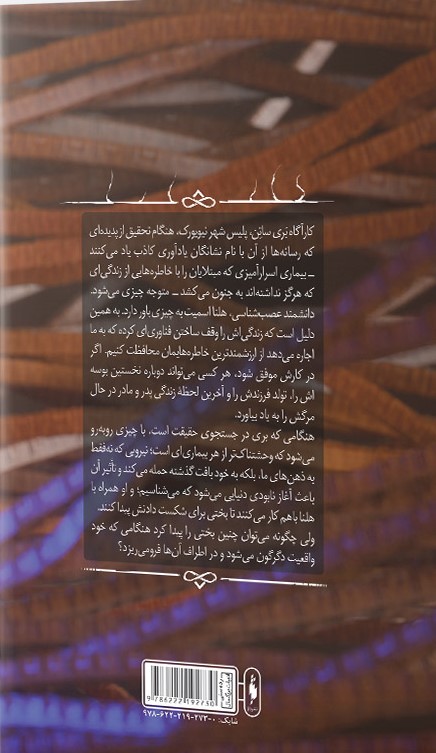 کارآگاه بَری ساتن، پلیس شهر نیویورک، هنگام تحقیق از پدیده‌ای
که رسانه‌ها از آن با نام نشانگان یادآوری کاذب یاد می‌کنند
ــ بیماری اسرارآمیزی که مبتلایان را با خاطره‌هایی از زندگی‌ای
که هرگز نداشته‌اند به جنون می‌کشد ــ متوجه چیزی می‌شود.
دانشمند عصب‌شناسی، هلنا اسمیت به چیزی باور دارد. به همین
دلیل است که زندگی‌اش را وقف ساختن فناوری‌ای کرده که به ما
اجازه می‌دهد از ارزشمندترین خاطره‌هایمان محافظت کنیم. اگر
در کارش موفق شود، هر کسی می‌تواند دوباره نخستین بوسه
اش را، تولد فرزندش را و آخرین لحظهٔ زندگی پدر و مادر در حال
مرگش را به یاد بیاورد.
هنگامی که بری در جستجوی حقیقت است، با چیزی روبه‌رو
می‌شود که وحشتناک‌تر از هر بیماری‌ای است؛ نیرویی که نه‌فقط
به ذهن‌های ما، بلکه به خود بافت گذشته حمله می‌کند و تأثیر آن
باعث آغاز نابودی دنیایی می‌شود که می‌شناسیم؛ و او همراه با
هلنا با هم کار می‌کنند تا بختی برای شکست دادنش پیدا کنند.
ولی چگونه می‌توان چنین بختی را پیدا کرد هنگامی که خود
واقعیت دگرگون می‌شود و در اطراف آن‌ها فرومی‌ریزد؟
9 786222 192730
شابک: ۹۷۸-۶۲۲-۲۱۹-۲۷۳-۰